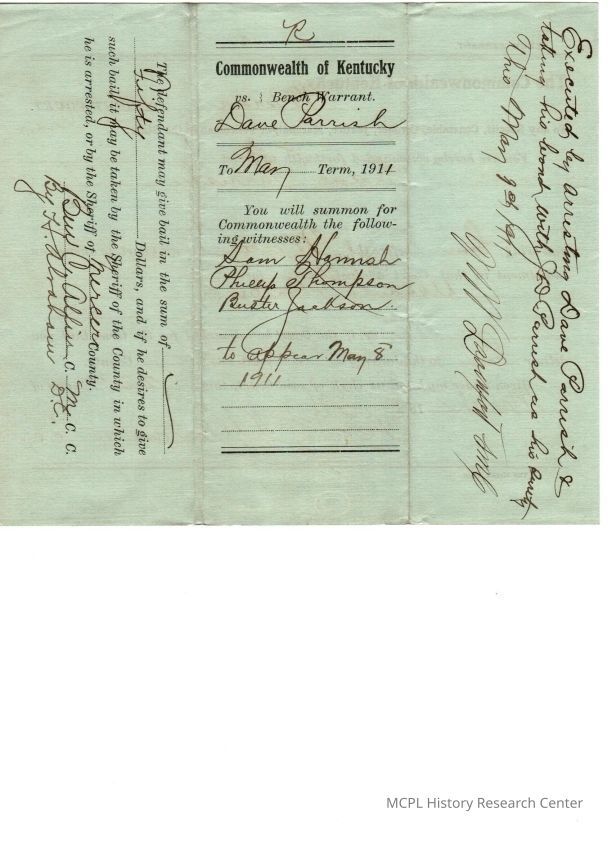 The defendant may give bail in the sum of
Fifty Dollars, and if he desires to give
such bail, it may be taken by the Sheriff of the County in which
he is arrested, or by the Sheriff of Mercer County.
Ben C. Allin C. M. C. C.
By H. Abraham D.C.
R
Commonwealth of Kentucky
vs. } Bench Warrant.
Dave Parrish
To May Term, 1911
You will summon for
Commonwealth the follow-
ing witnesses:
Sam Hannah
Phillip Thompson
Buster Jackson
to appear May 8
1911
Executed by arresting Dave Parrish &
taking his bond with J D Parrish as his surety
This May 1911
MCPL History Research Center